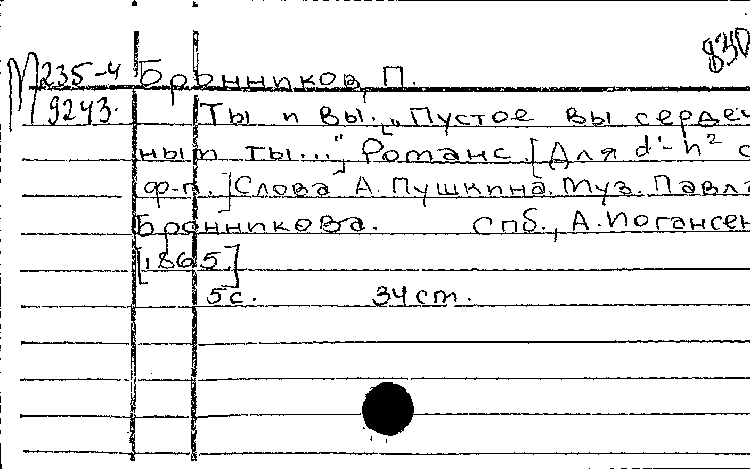 830
М 235-4 Бронников, П.
9243. Ты и вы. ["Пустое вы сердеч
ным ты..."] Романс. [Для d'-h² с
ф-п.] Слова А. Пушкина. Муз. Павла
Бронникова. Спб., А. Иогансен
[1865]
5 с. 34 см.